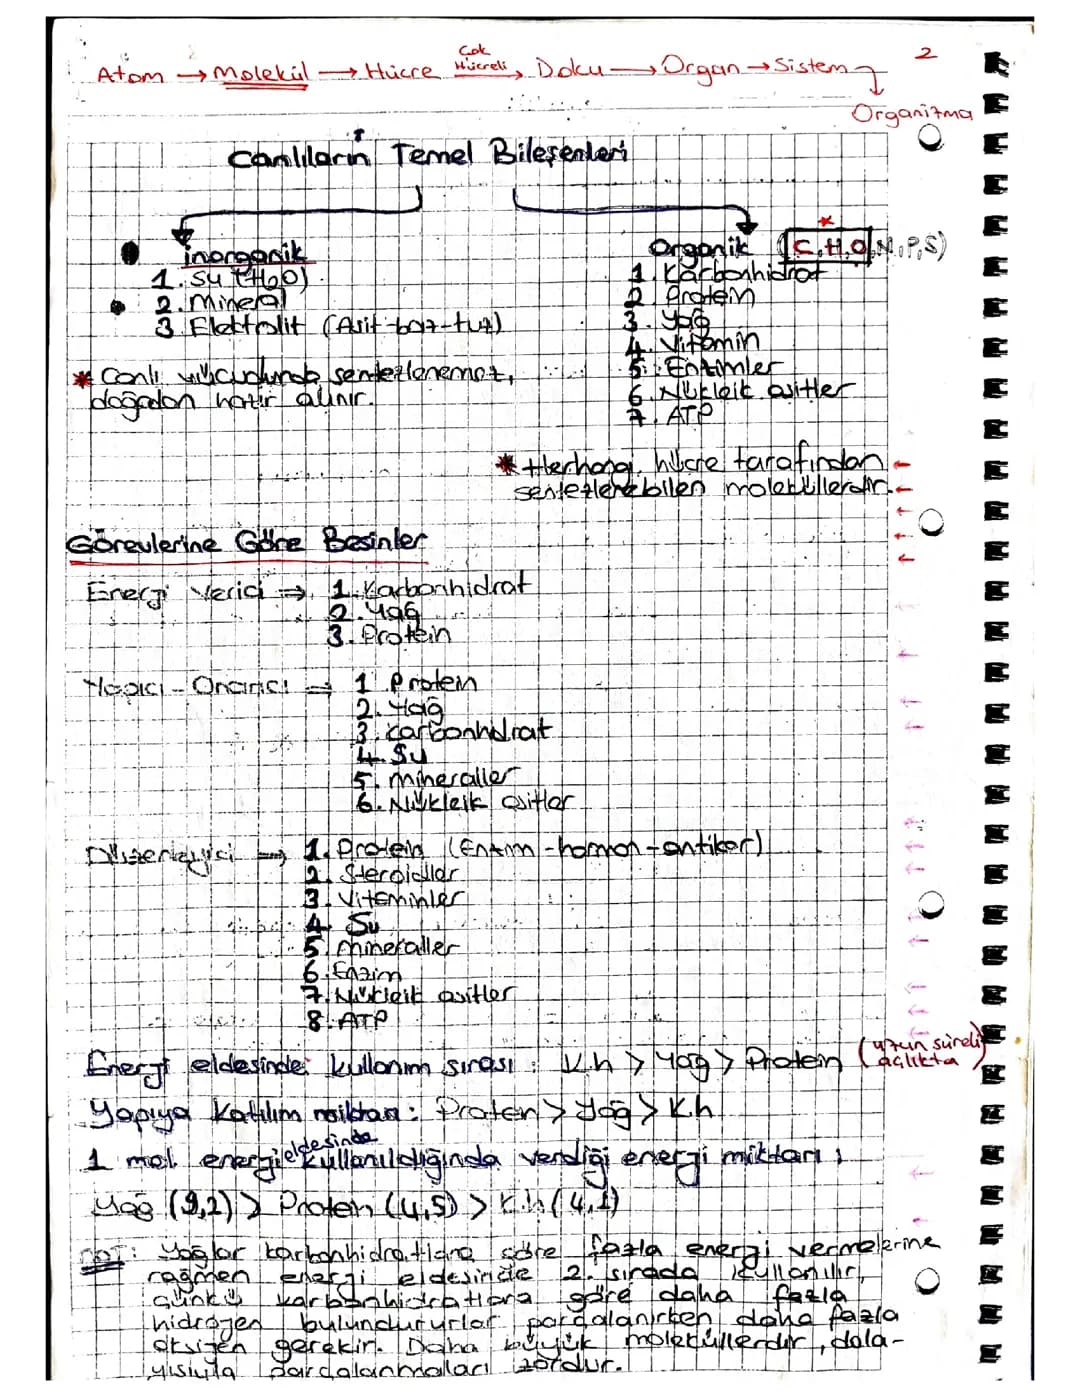 2
Çok
Hücreli
Atom → Molekül → Hücre → Doku → Organ → Sistem
Organizma
Canlıların Temel Bileşenleri
inorganik
1. Su (H₂O)
2. Mineral
3. Elektrolit (Asit-baz-tuz)
* Canlı vücudunda sentezlenemez,
doğadan hazır alınır.
Organik (C,H,O,N,P,S)
1. Karbonhidrat
2. Protein
3. Yağ
4. Vitamin
5. Enzimler
6. Nükleik asitler
7. ATP
* Herhangi hücre tarafından
sentezlenebilen moleküllerdir.
Görevlerine Göre Besinler
Enerji Verici ⇒ 1. Karbonhidrat
2. Yağ
3. Protein
Yapıcı - Onarıcı ⇒ 1 Protein
2. Yağ
3. karbonhidrat
4. Su
5. mineraller
6. Nükleik asitler
Düzenleyici ⇒ 1. Protein (Enzim-hormon-antikor)
2. Steroidler
3. Vitaminler
4. Su
5. mineraller
6. Enzim
7. Nükleik asitler
8. ATP
Enerji eldesinde kullanım sırası : K.h > Yağ > Protein (uzun süreli
açlıkta
Yapıya Katılım miktarı : Protein > Yağ > K.h
eldesinde
1 mol enerji kullanıldığında verdiği enerji miktarı ;
Yağ (9,2) > Protein (4,5) > K.h (4,1)
NOT: Yağlar karbonhidratlara göre fazla enerji vermelerine
rağmen enerji eldesinde 2. sırada kullanılır,
çünkü karbonhidratlara göre daha fazla
hidrojen bulundururlar parçalanırken daha fazla
oksijen gerekir. Daha büyük moleküllerdir, dola-
yısıyla parçalanmaları zordur.